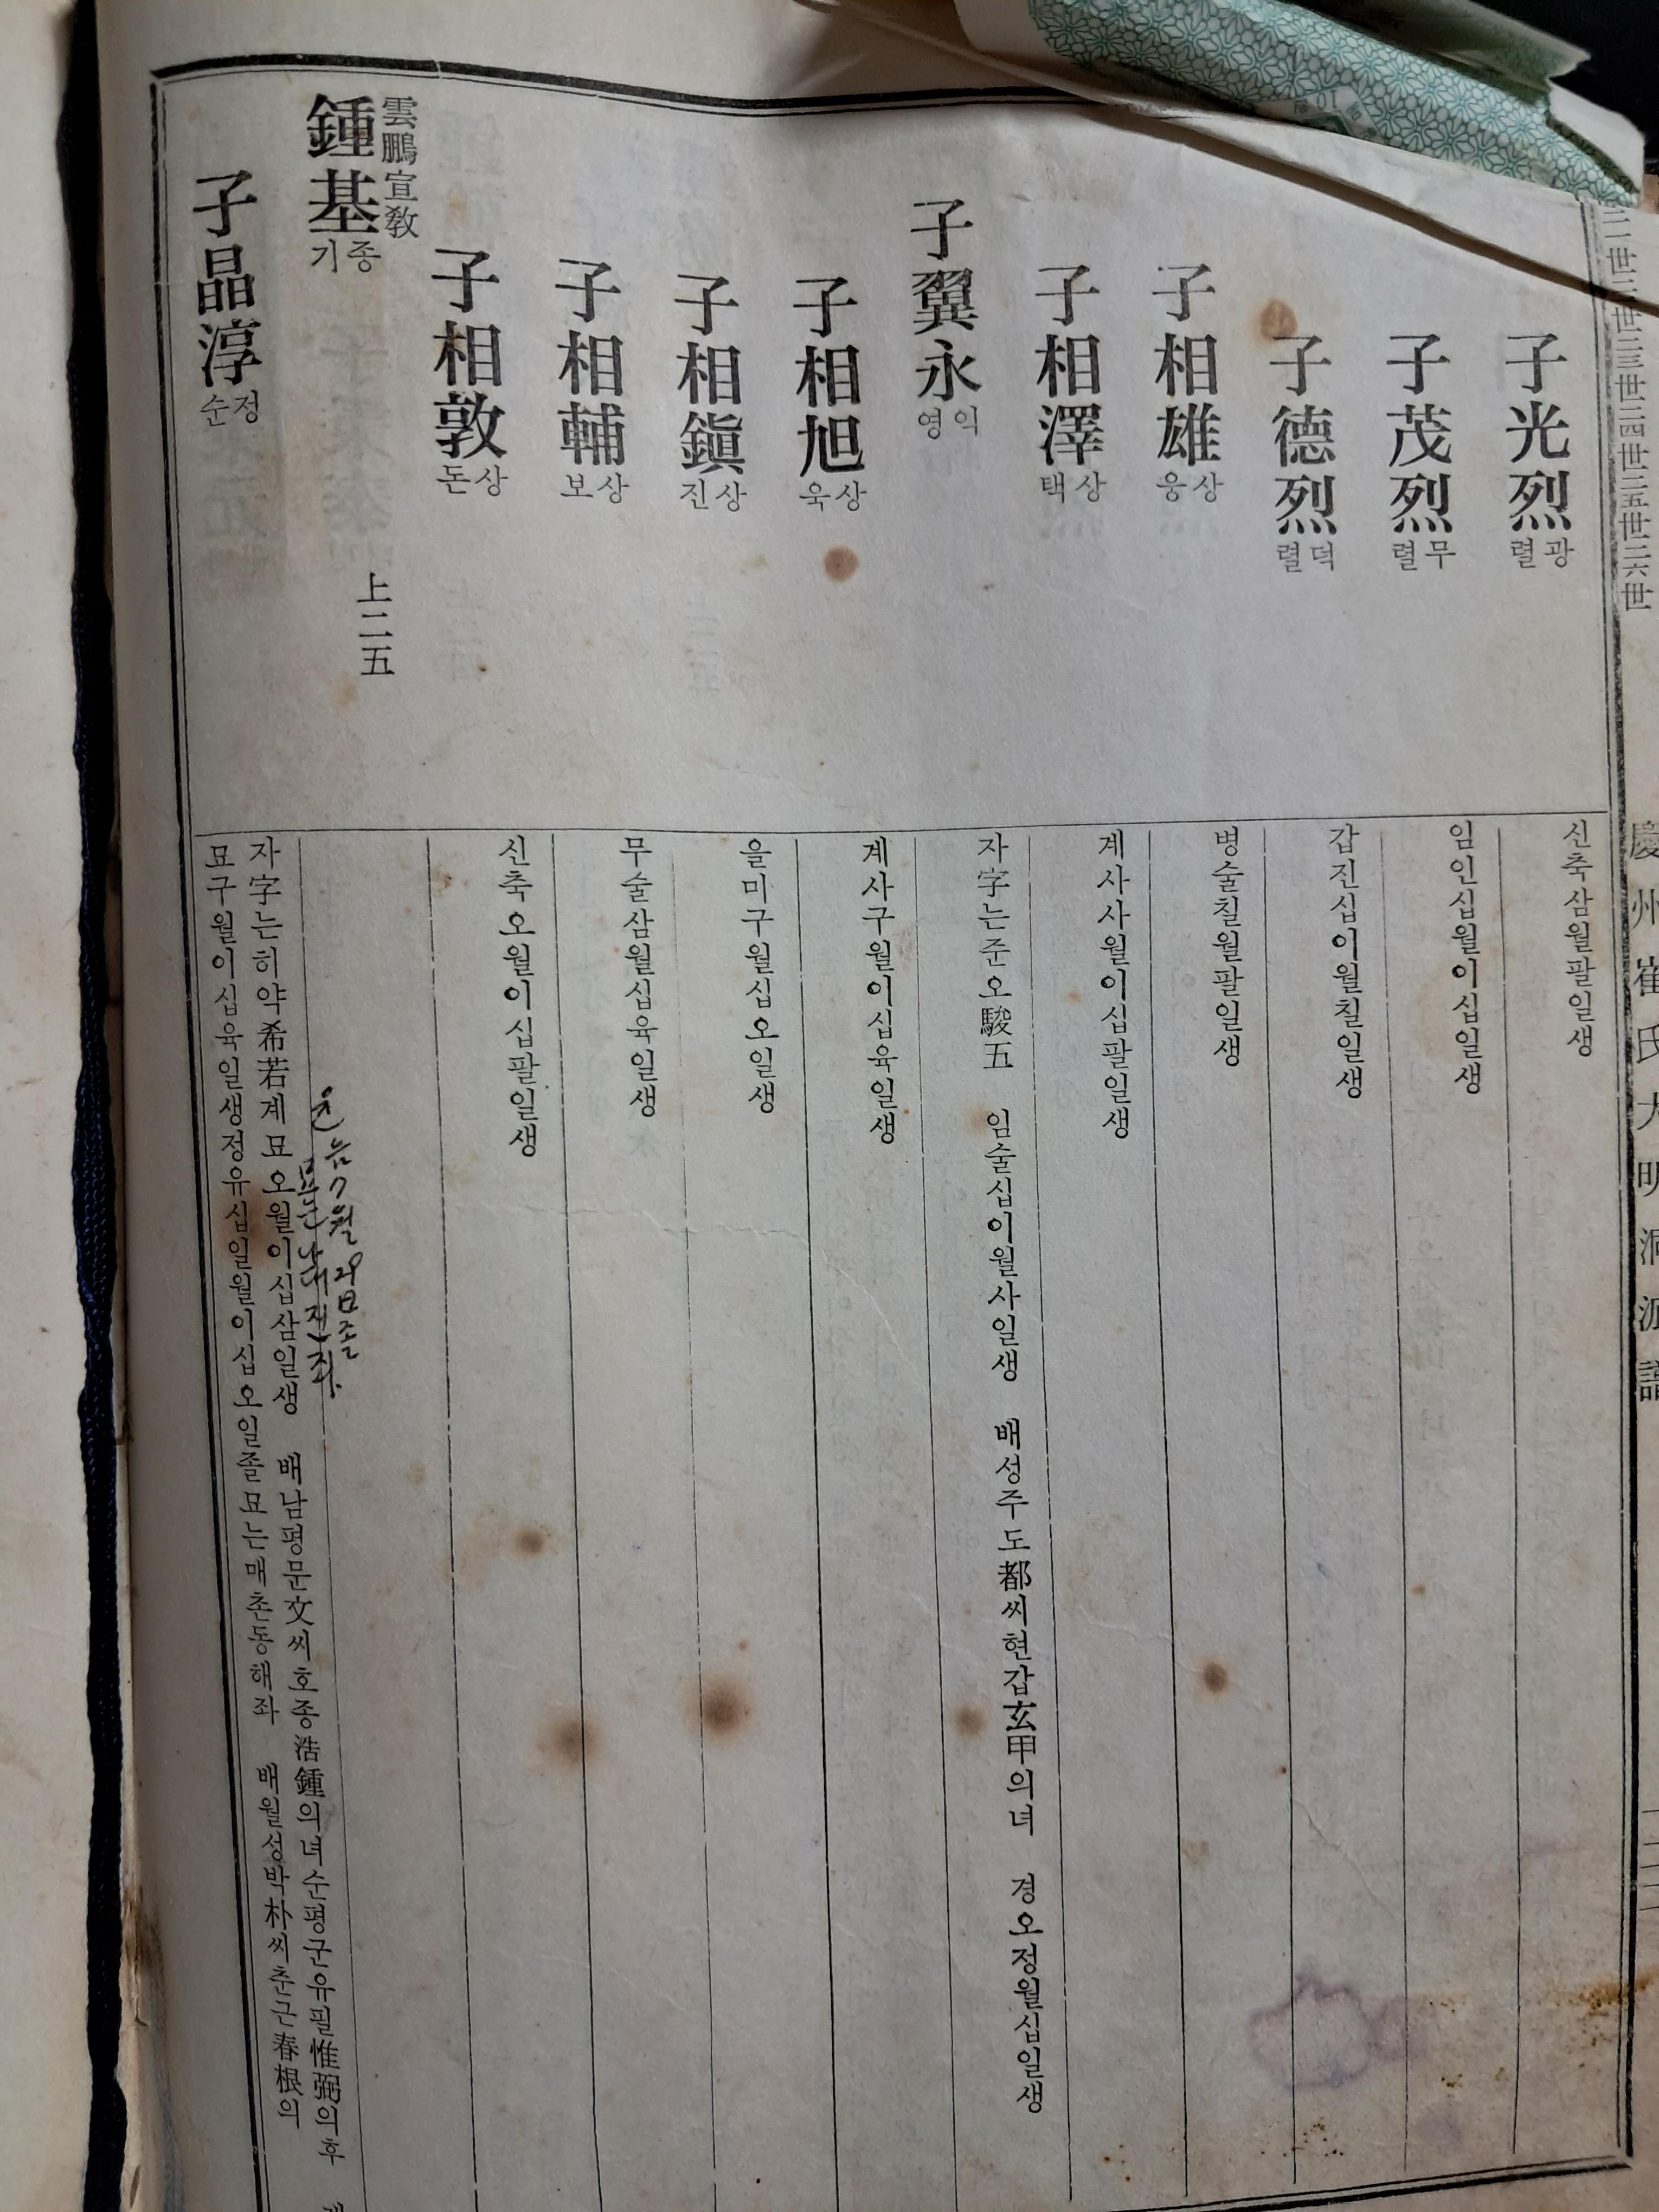 二一世二二世二三世二四世二五世二六世
慶州崔氏大明洞派譜
子光烈 광렬
신축삼월팔일생
子茂烈 무렬
임인십월이십일생
子德烈 덕렬
갑진십이월칠일생
子相雄 상웅
병술칠월팔일생
子相澤 상택
계사사월이십팔일생
子翼永 익영
자字는준오駿五 임술십이월사일생 배성주도都씨현갑玄甲의녀 경오정월십일생
子相旭 상욱
계사구월이십육일생
子相鎭 상진
을미구월십오일생
子相輔 상보
무술삼월십육일생
子相敦 상돈
신축오월이십팔일생
雲鵬宣敎
鍾基 종기
上二五
子晶淳 정순
자字는히약希若계묘오월이십삼일생 배남평문文씨호종浩鍾의녀순평군유필惟弼의후
묘구월이십육일생정유십일월이십오일졸묘는매촌동해좌 배월성박朴씨춘근春根의